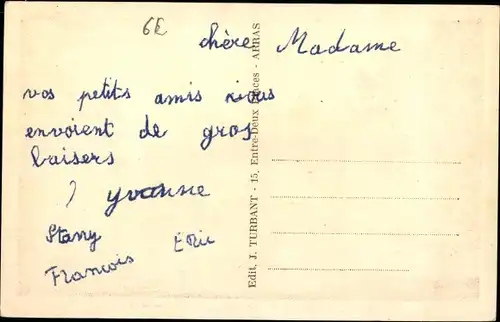 6E
chère Madame
vos petits amis vous
envoient de gros
baisers
yvonne
Stany
Eric
Francois
Edit. J. TURBANT - 15, Entre-Deux-Places - ARRAS